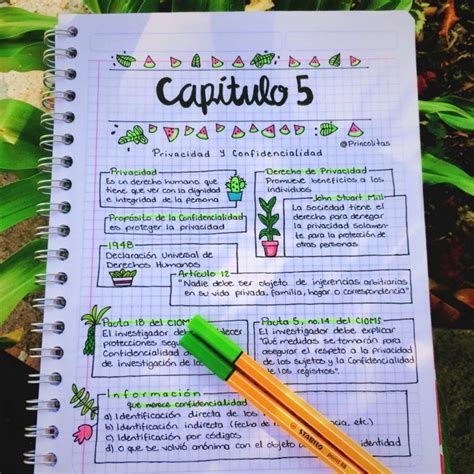 Capítulo 5
@Princolitas
Privacidad y Confidencialidad
Privacidad
Es un derecho humano que
tiene que ver con la dignidad
e integridad de la persona
Propósito de la Confidencialidad
es proteger la privacidad
Derecho de Privacidad
Promueve beneficios a los
individuos
John Stuart Mill
La Sociedad tiene el
derecho para denegar
la privacidad solamen-
te para la protección de
otras personas
1948
Declaración Universal de
Derechos Humanos
Artículo 12
"Nadie debe ser objeto de injerencias arbitrarias
en su vida privada, familia, hogar o correspondencia"
Pauta 18 del CIOMS
El investigador debe
protecciones
Confidencialidad
de investigación de
Pauta 5, no.14 del CIOMS
El investigador debe explicar
"Qué medidas se tomarán para
asegurar el respeto a la privacidad
de los sujetos y la Confidencialidad
de los registros".
Información
que merece confidencialidad
a) Identificación directa de los
b) Identificación indirecta (fecha de etc)
c) Identificación por códigos
d) o que se volvió anónima con el objeto identidad
STABILO point 88